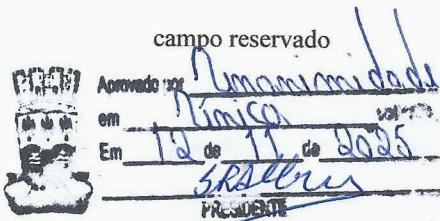 campo reservado
Aprovado por Unanimidade
em Única votação
Em 12 de 11 de 2025
PRESIDENTE